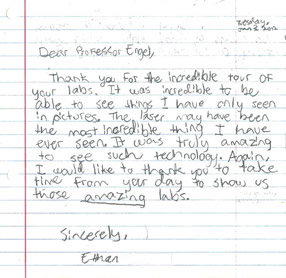 Tuesday,
Dear Professor Engel,
Thank you for the incredible tour of
your labs. It was incredible to be
able to see things I have only seen
in pictures. The laser may have been
the most incredible thing I have
ever seen. It was truly amazing
to see such technology. Again,
I would like to thank you to take
time from your day to show us
those amazing labs.
Sincerely,
Ethan